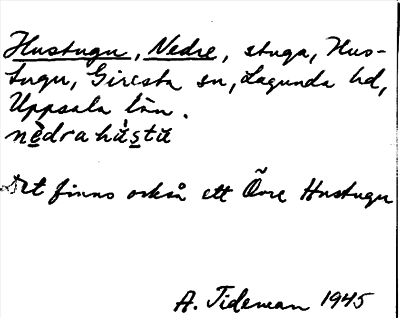 Hustugu, Nedre, stuga, Hus-
tugu, Giresta sn, Lagunda hd,
Uppsala län.
nèdra hùstu
Det finns också ett Övre Hustugu
A. Tideman 1945